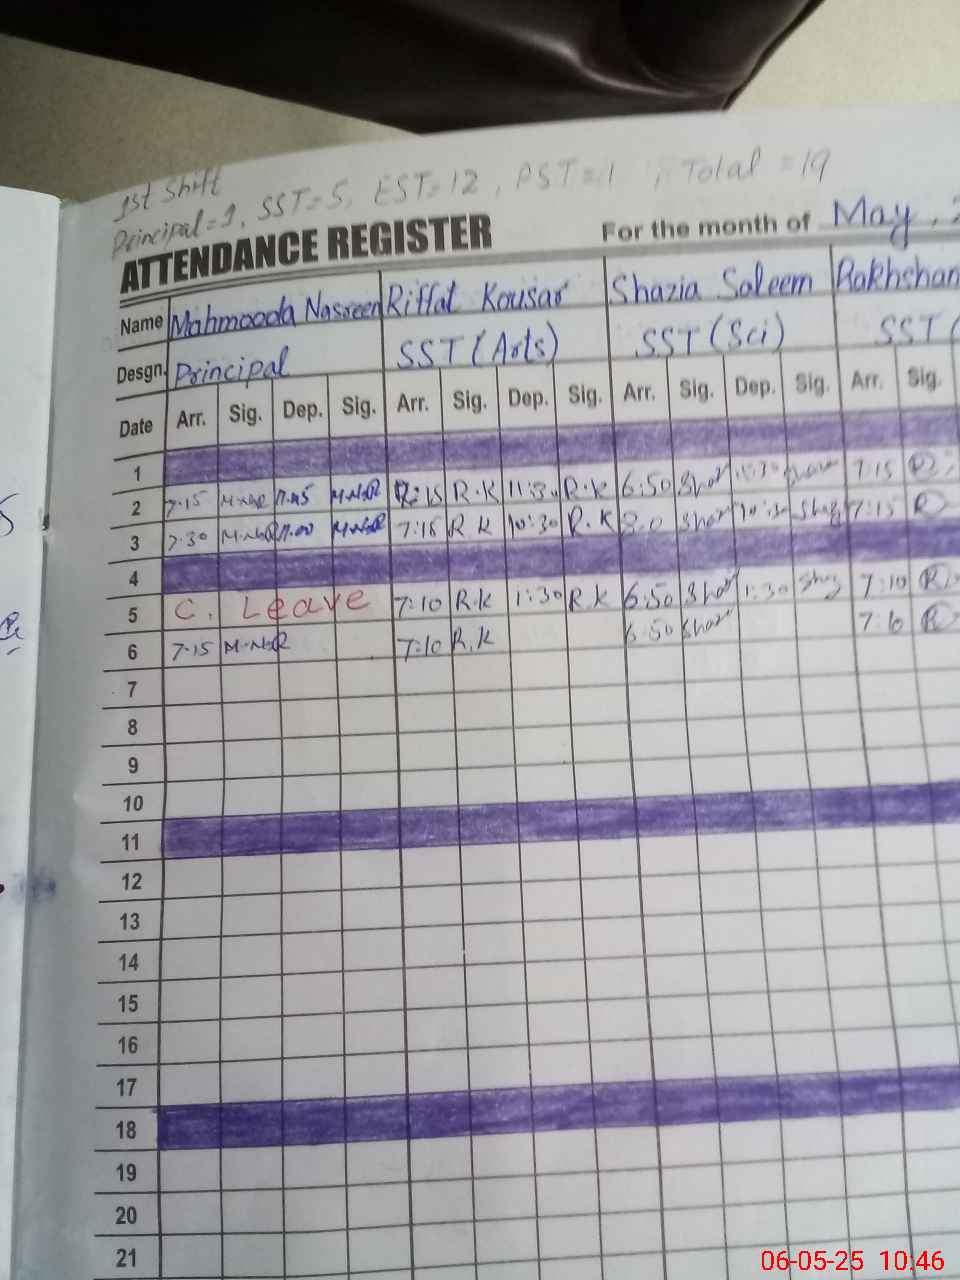 1st Shift
Principal=1, SST=5, EST=12, PST=1, Total=19
ATTENDANCE REGISTER For the month of May,
Name Mahmooda Nasreen Riffat Kousar Shazia Saleem Rakhshan
Desgn. Principal SST (Arts) SST (Sci) SST (
Date Arr. Sig. Dep. Sig. Arr. Sig. Dep. Sig. Arr. Sig. Dep. Sig. Arr. Sig.
1
2 7:15 R.K 11:30 R.K 6:50 7:15
3 7:30 7:15 R.K 10:30 R.K 8:0 7:15
4
5 C. Leave 7:10 R.K 1:30 R.K 6:50 1:30 7:10
6 7:15 7:10 R.K 6:50 7:10
7
8
9
10
11
12
13
14
15
16
17
18
19
20
21
06-05-25 10:46